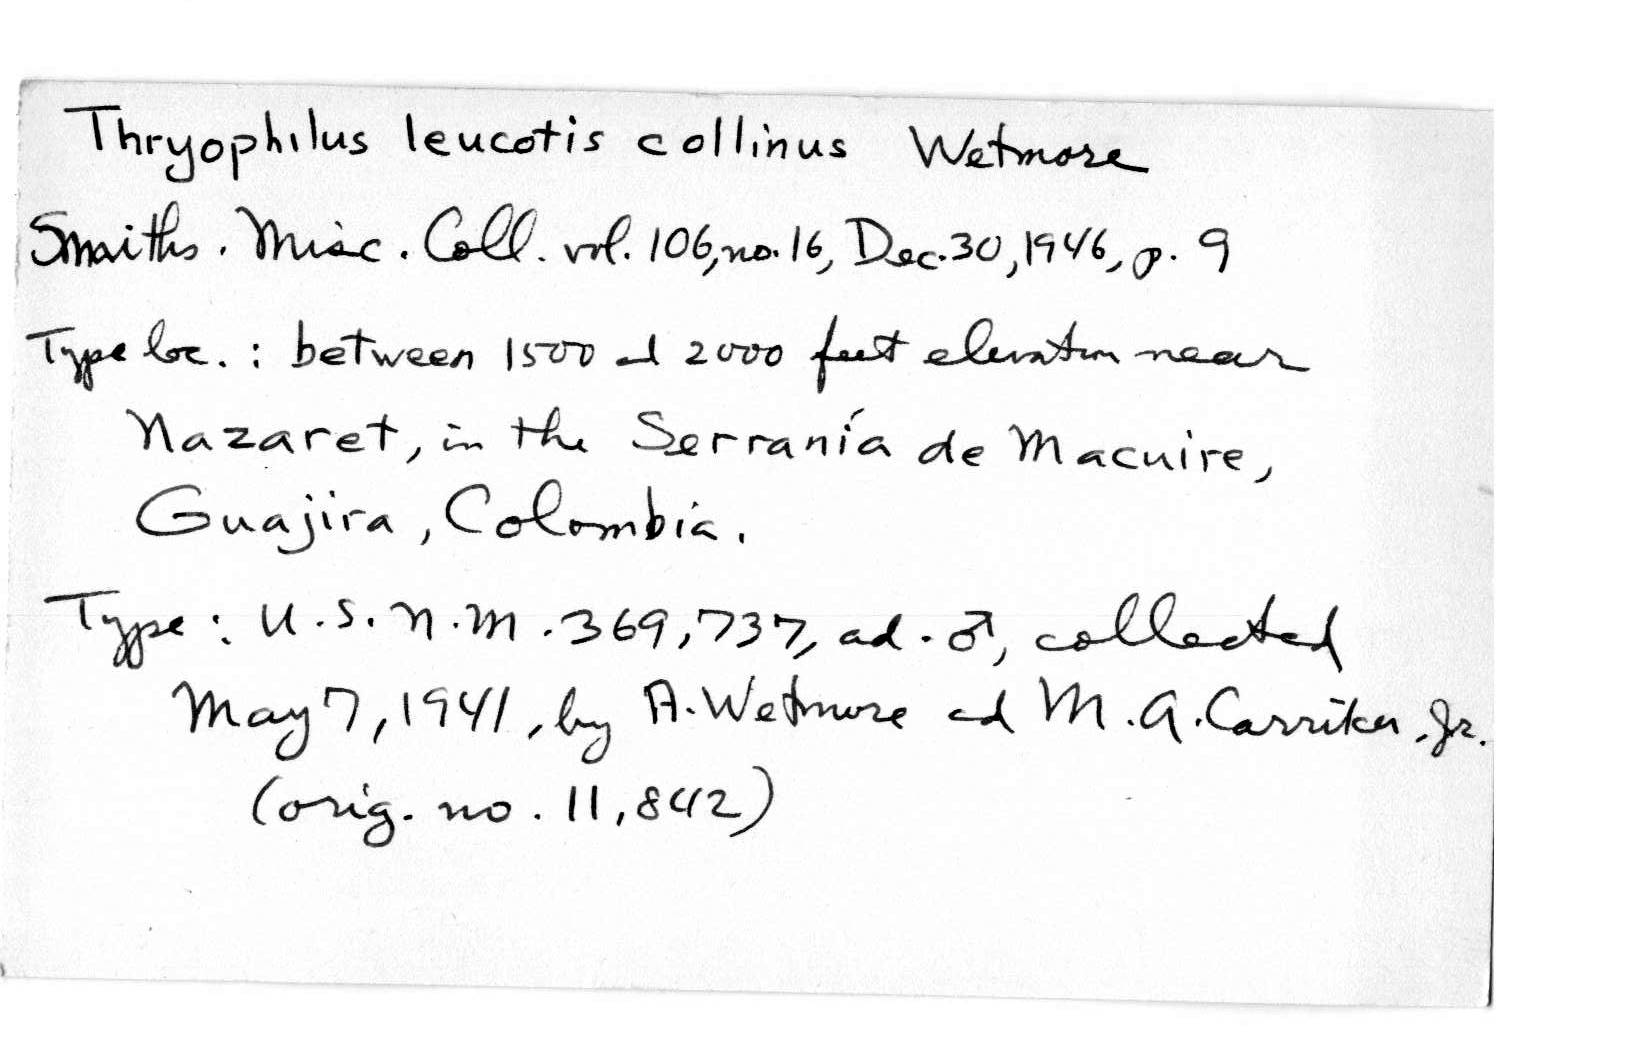 Thryophilus leucotis collinus Wetmore
Smiths. Misc. Coll. vol. 106, no. 16, Dec. 30, 1946, p. 9
Type loc. : between 1500 and 2000 feet elevation near
Nazaret, in the Serranía de Macuire,
Guajira, Colombia.
Type : U.S.N.M. 369,737, ad. ♂, collected
May 7, 1941, by A. Wetmore and M.A. Carriker, Jr.
(orig. no. 11,842)